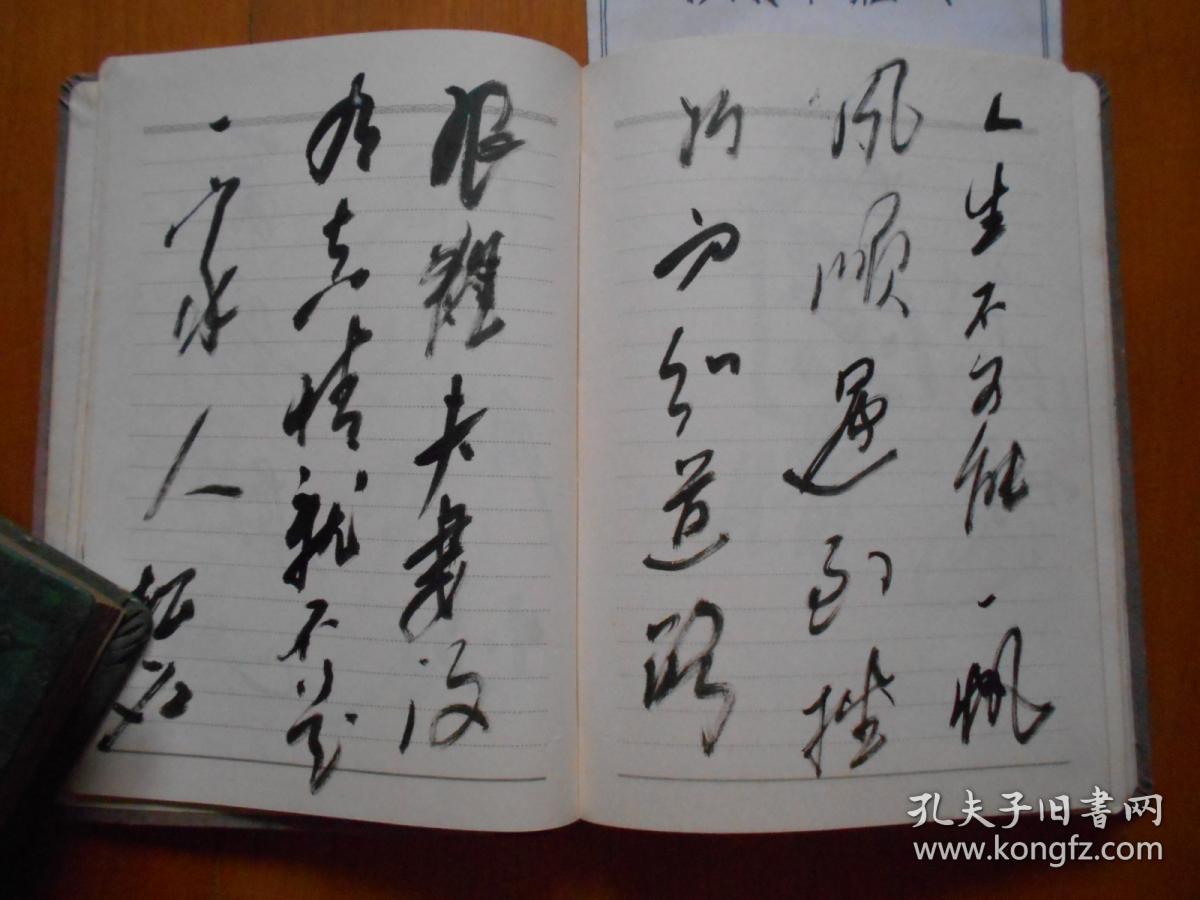 人生不可能一帆
风顺遇到挫
折方知道路
艰难夫妻没
有真情就不是
一家人
孔夫子旧书网
www.kongfz.com